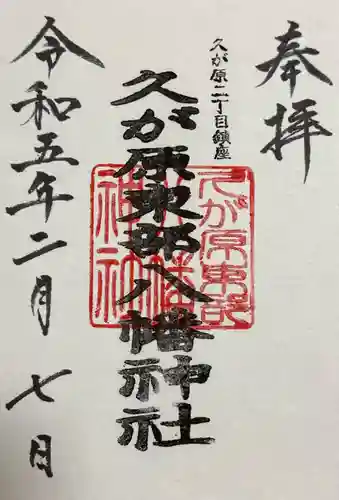 奉拝
久が原二丁目鎮座
久が原東部八幡神社
久が原東部
八幡
神社
令和五年二月七日